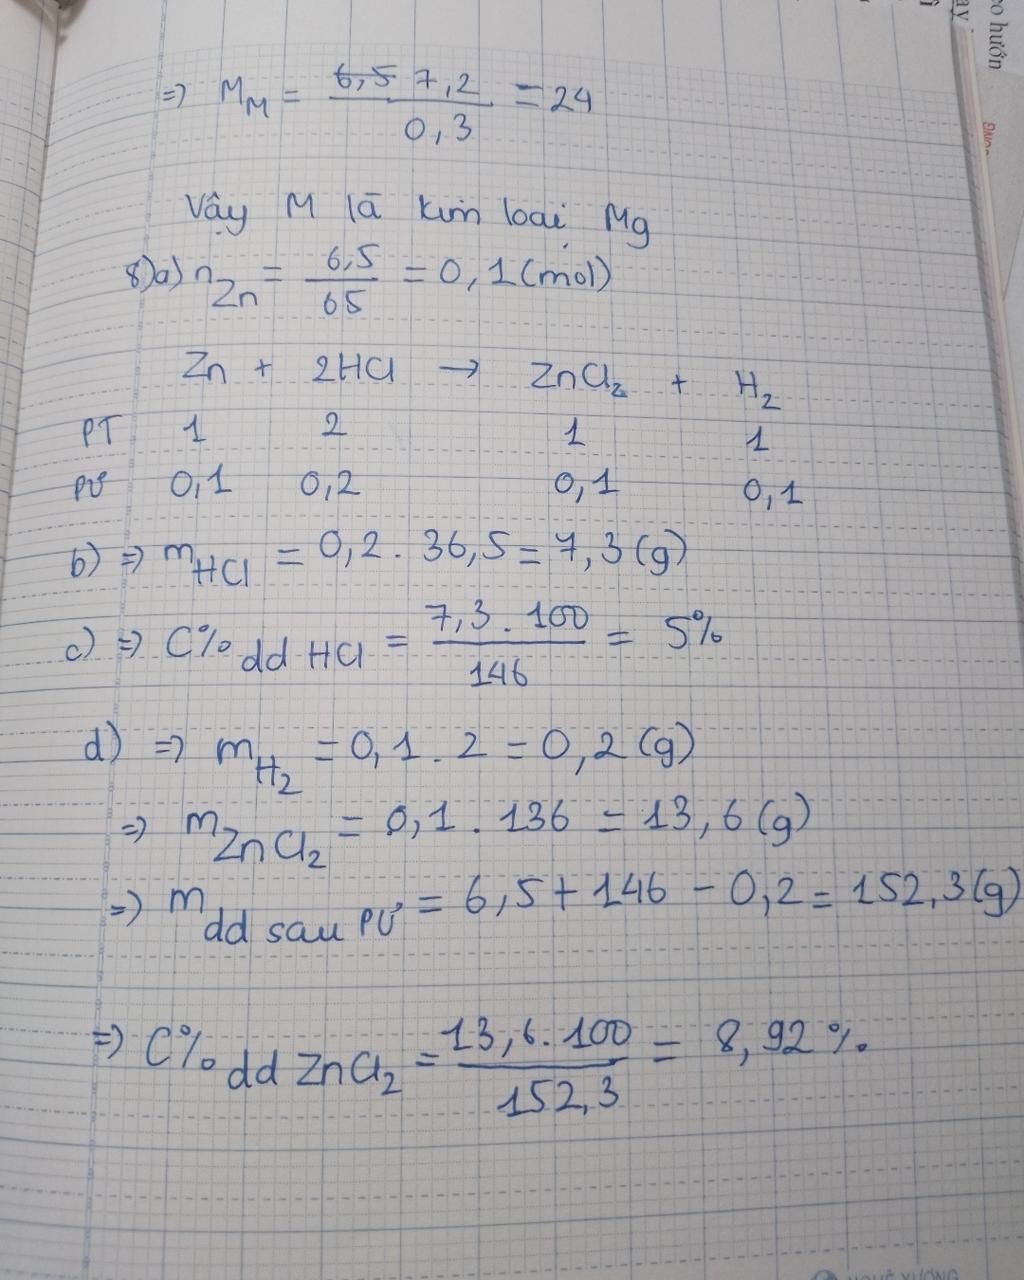 => M_M = 6,5 7,2 / 0,3 = 24
Vậy M là kim loại Mg
8)a) n_Zn = 6,5 / 65 = 0,1 (mol)
Zn + 2HCl → ZnCl₂ + H₂
PT 1 2 1 1
PƯ 0,1 0,2 0,1 0,1
b) => m_HCl = 0,2 . 36,5 = 7,3 (g)
c) => C% dd HCl = 7,3 . 100 / 146 = 5%
d) => m_H₂ = 0,1 . 2 = 0,2 (g)
=> m_ZnCl₂ = 0,1 . 136 = 13,6 (g)
=> m dd sau PƯ = 6,5 + 146 - 0,2 = 152,3 (g)
=> C% dd ZnCl₂ = 13,6 . 100 / 152,3 = 8,92 %